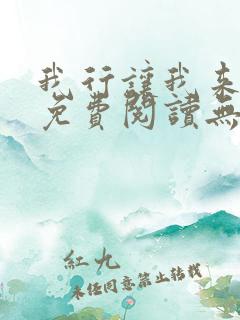 我行讓我來
免費閱讀無
紅九
未經同意禁止轉載